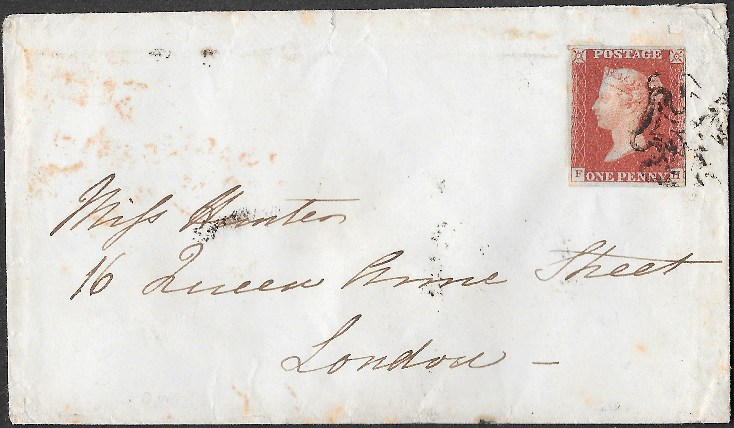 POSTAGE
F ONE PENNY H
Miss Hunter
16 Queen Anne Street
London –